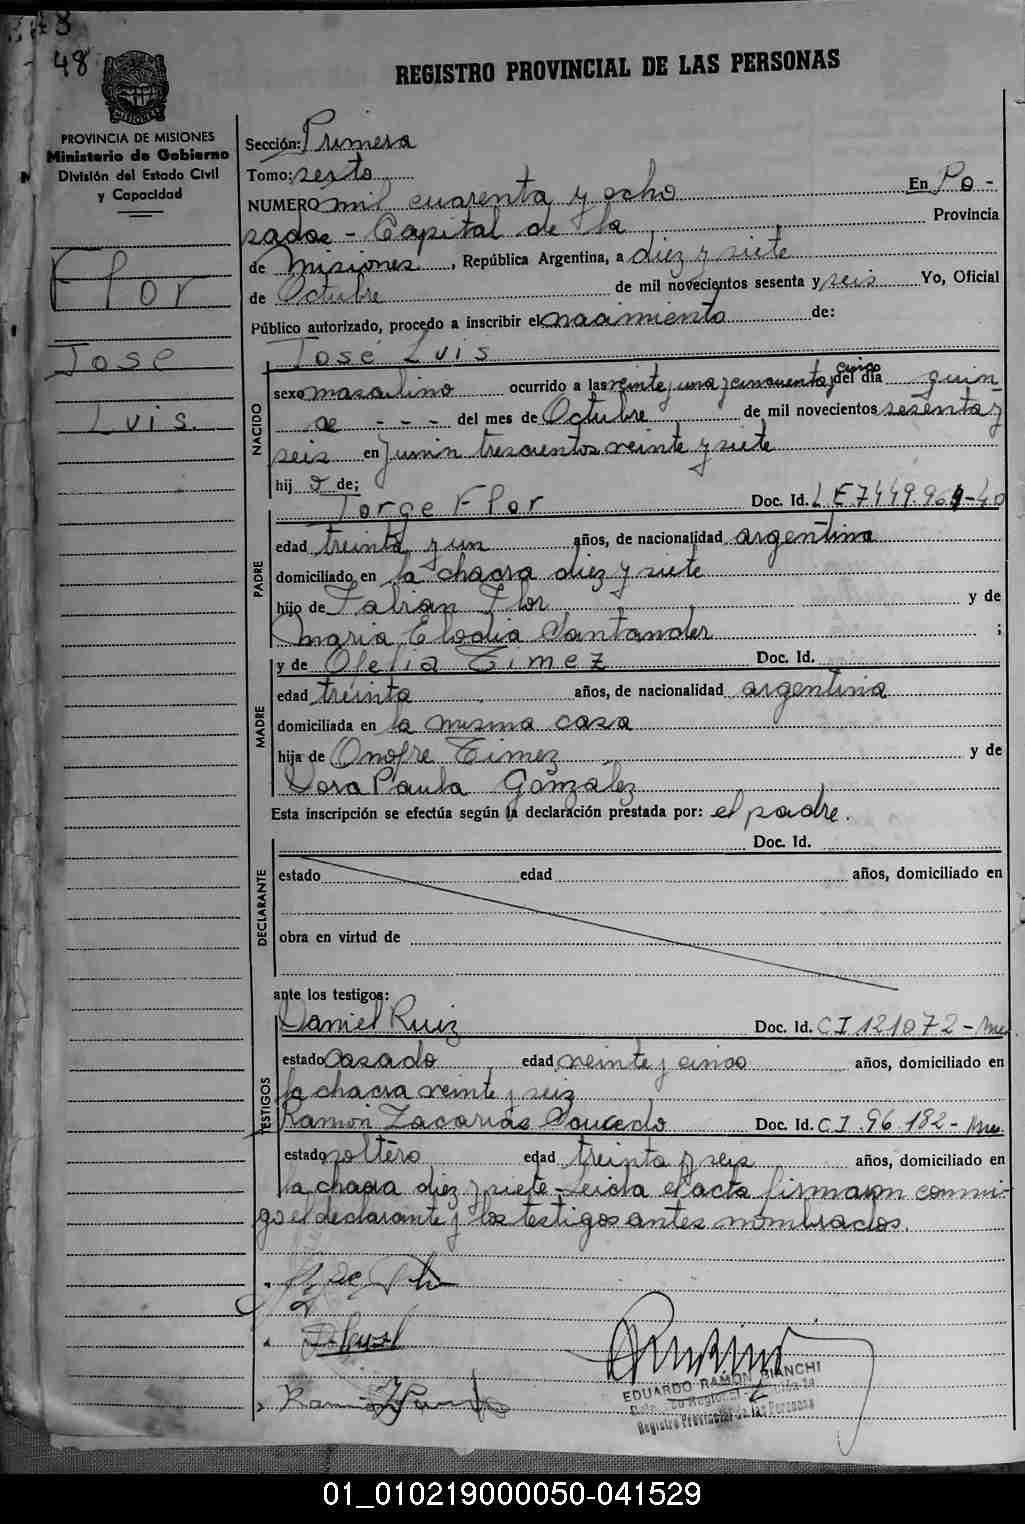 48
REGISTRO PROVINCIAL DE LAS PERSONAS
MISIONES
PROVINCIA DE MISIONES
Ministerio de Gobierno
División del Estado Civil
y Capacidad
Flor
Jose
Luis.
Sección: Primera
Tomo: sexto
NUMERO mil cuarenta y ocho En Po-
sadas - Capital de la Provincia
de Misiones, República Argentina, a diez y siete
de Octubre de mil novecientos sesenta y seis Yo, Oficial
Público autorizado, procedo a inscribir el nacimiento de:
José Luis
NACIDO
sexo masculino ocurrido a las veinte y una y cincuenta y cinco del día quin-
ce - - - del mes de Octubre de mil novecientos sesenta y
seis en Junin trescientos veinte y siete
hijo de;
PADRE
Jorge Flor Doc. Id. L E 7449.961-40
edad treinta y un años, de nacionalidad argentina
domiciliado en la chacra diez y siete
hijo de Fabian Flor y de
Maria Elodia Santander ;
MADRE
y de Ofelia Timez Doc. Id.
edad treinta años, de nacionalidad argentina
domiciliada en la misma casa
hija de Onofre Timez y de
Dora Paula González
Esta inscripción se efectúa según la declaración prestada por: el padre.
DECLARANTE
Doc. Id.
estado edad años, domiciliado en
obra en virtud de
ante los testigos:
TESTIGOS
Daniel Ruiz Doc. Id. C I 121072 - Mnes.
estado casado edad veinte y cinco años, domiciliado en
la chacra veinte y seis
Ramón Zacarias Saucedo Doc. Id. C I. 96.182 - Mnes.
estado soltero edad treinta y seis años, domiciliado en
la chacra diez y siete - Leida el acta firmaron conmi-
go el declarante y los testigos antes nombrados.
EDUARDO RAMON BIANCHI
Registro Provincial de las Personas
01_010219000050-041529